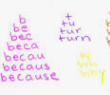 b
be
bec
beca
becau
becaus
because
t
tu
tur
turn
why